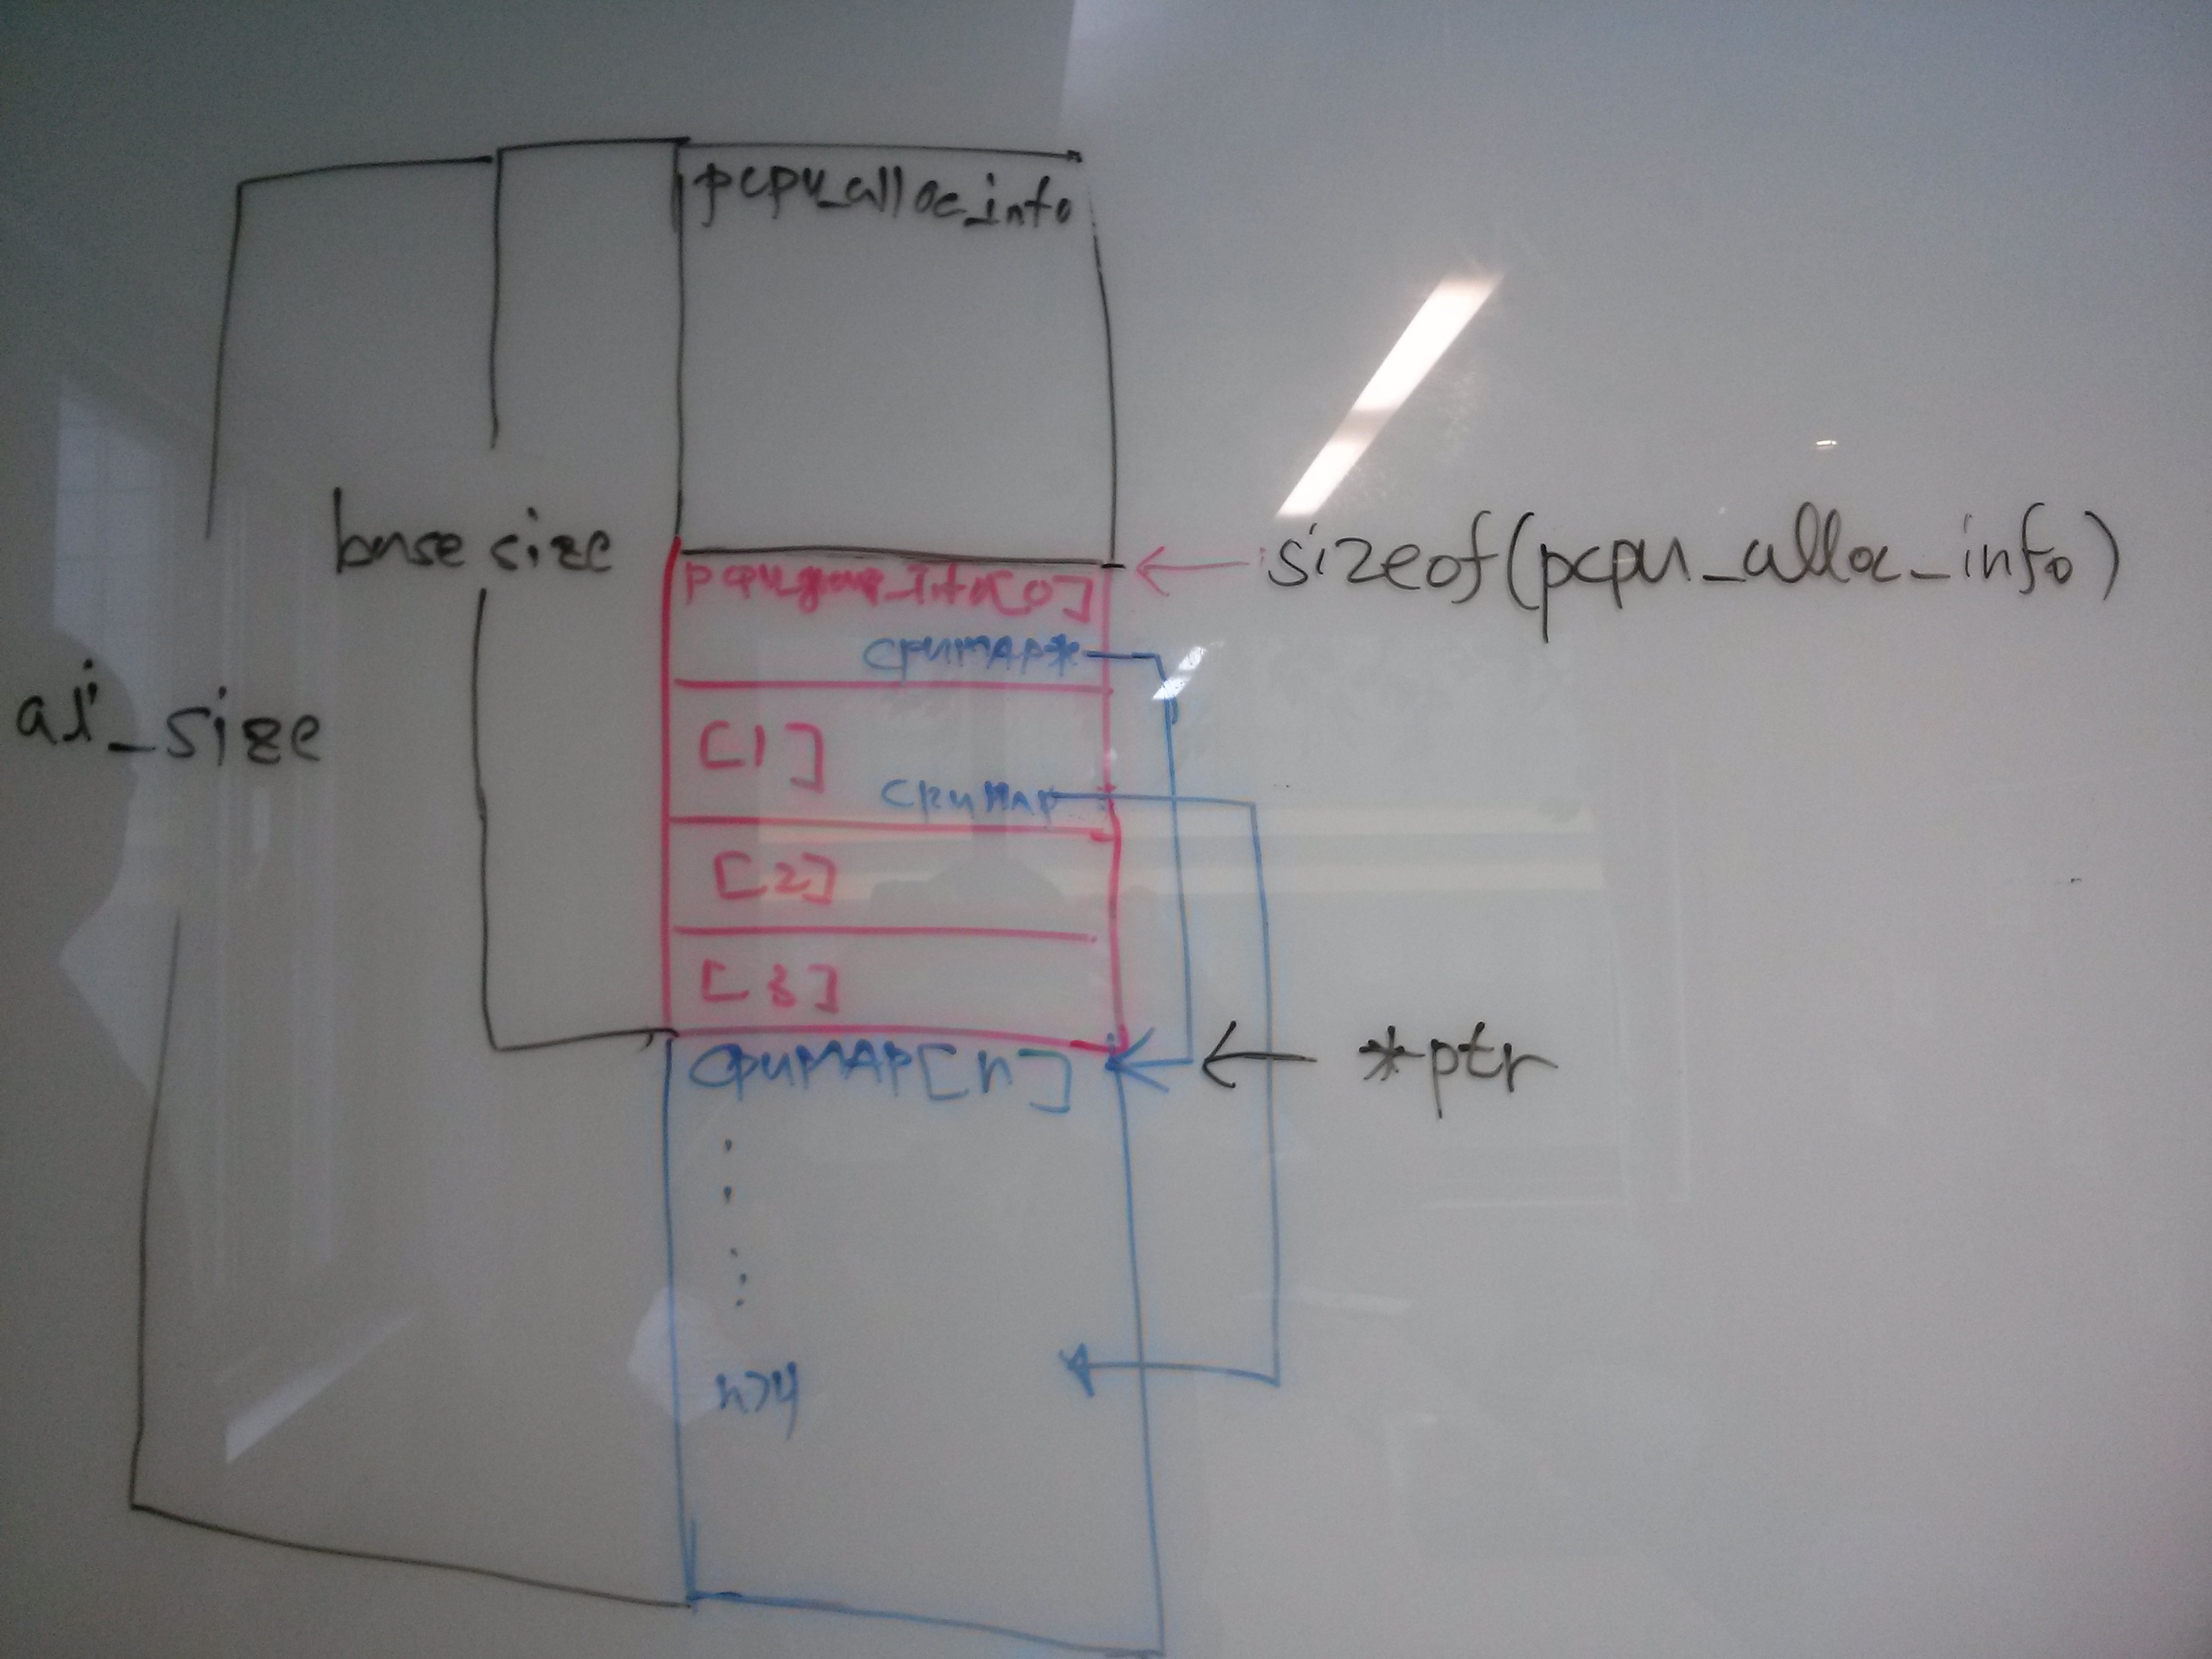 pcpu_alloc_info
base size
sizeof(pcpu_alloc_info)
pcpu_group_Info[0]
cpuMAP*
ai_size
[1]
cpuMAP
[2]
[3]
cpuMAP[n]
*ptr
n>4